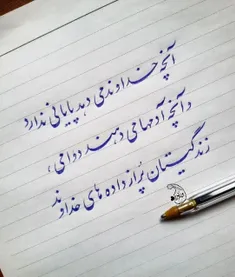 آنچه خداوند می دهد پایانی ندارد
و آنچه آدمها می دهند دوامی ؛
زندگیتان پر از داده های خداوند